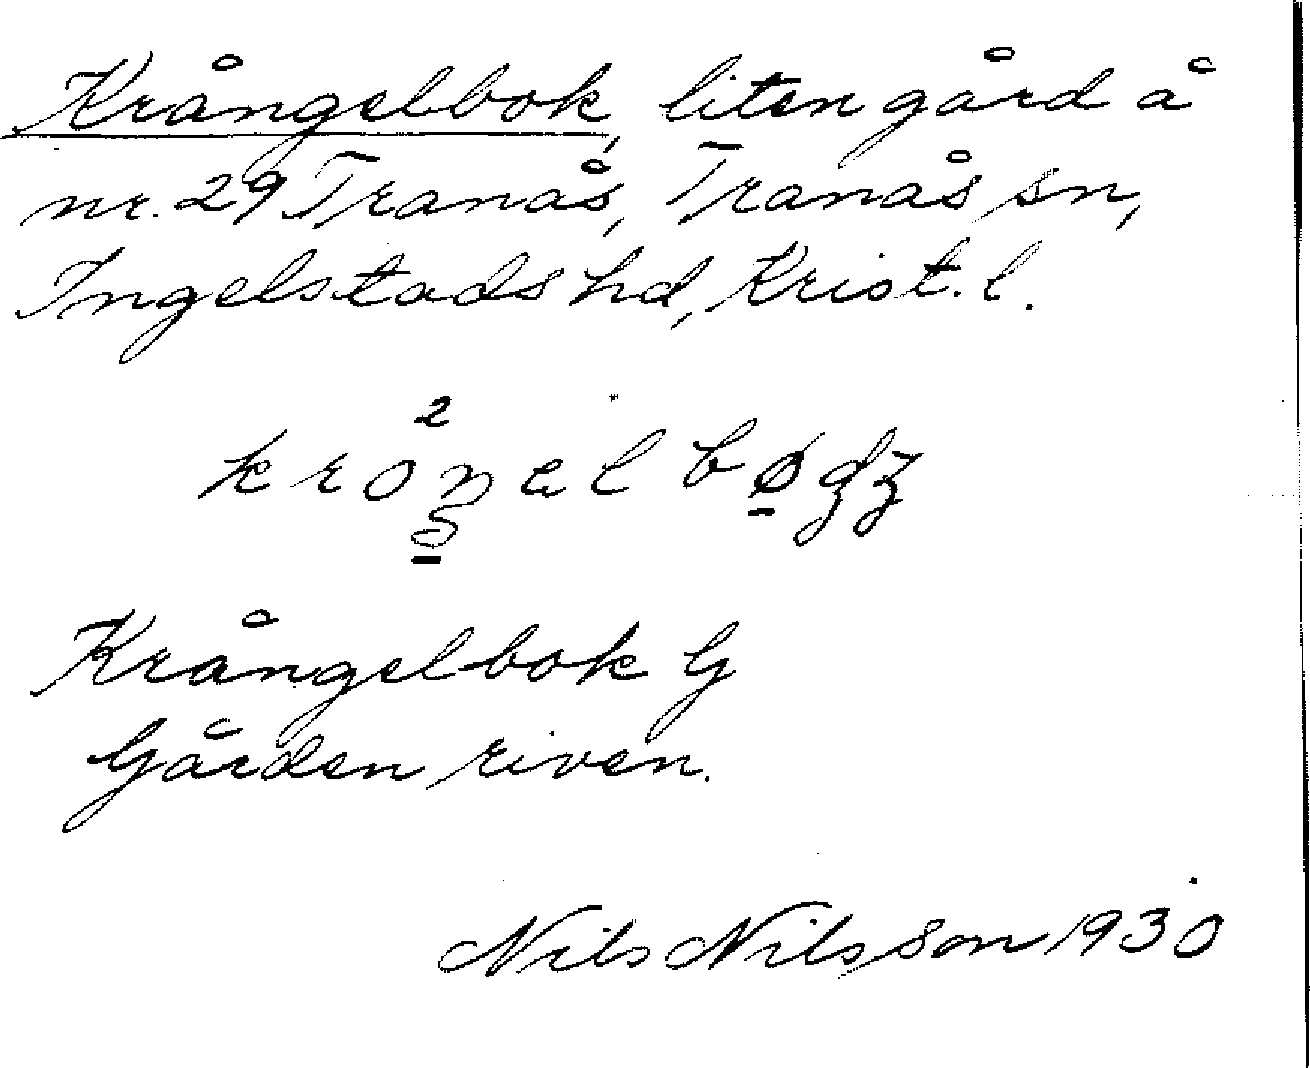 Krångelbok, liten gård å
nr. 29 Tranås, Tranås sn,
Ingelstads hd, Krist. l.
Krångelbok G
Gården riven.
Nils Nilsson 1930